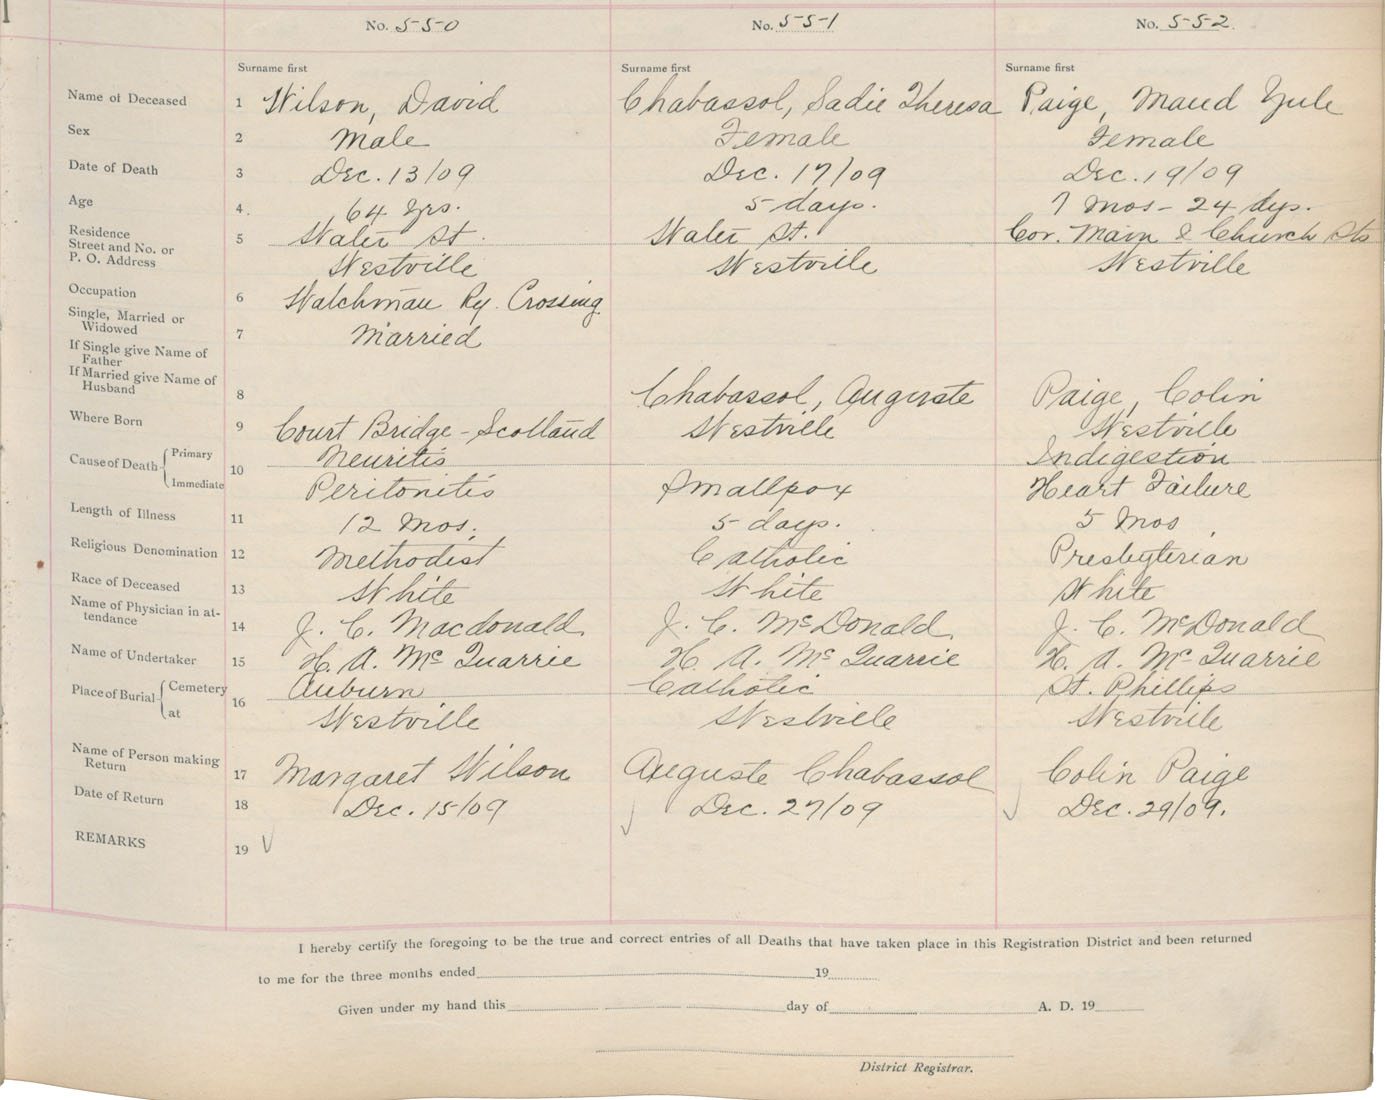 No. 550 No. 551 No. 552.
Surname first Surname first Surname first
Name of Deceased 1 Wilson, David Chabassol, Sadie Theresa Paige, Maud Yule
Sex 2 Male Female Female
Date of Death 3 Dec. 13/09 Dec. 17/09 Dec. 19/09
Age 4. 64 yrs. 5 days. 7 Mos - 24 dys.
Residence
Street and No. or 5 Water St. Water St. Cor. Main & Church Sts
P. O. Address Westville Westville Westville
Occupation 6 Watchman Ry. Crossing.
Single, Married or
Widowed 7 Married
If Single give Name of
Father
If Married give Name of
Husband 8 Chabassol, Auguste Paige, Colin
Where Born 9 Court Bridge - Scotland Westville Westville
Cause of Death Primary 10 Neuritis Indigestion
Immediate Peritonitis Smallpox Heart Failure
Length of Illness 11 12 Mos. 5 days. 5 Mos
Religious Denomination 12 Methodist Catholic Presbyterian
Race of Deceased 13 White White White
Name of Physician in at-
tendance 14 J. C. Macdonald J. C. McDonald J. C. McDonald
Name of Undertaker 15 H. A. McQuarrie H. A. McQuarrie H. A. McQuarrie
Place of Burial Cemetery 16 Auburn Catholic St. Phillips
at Westville Westville Westville
Name of Person making
Return 17 Margaret Wilson Auguste Chabassol Colin Paige
Date of Return 18 Dec. 15/09 Dec. 27/09 Dec. 29/09.
REMARKS 19
I hereby certify the foregoing to be the true and correct entries of all Deaths that have taken place in this Registration District and been returned
to me for the three months ended 19
Given under my hand this day of A. D. 19
District Registrar.